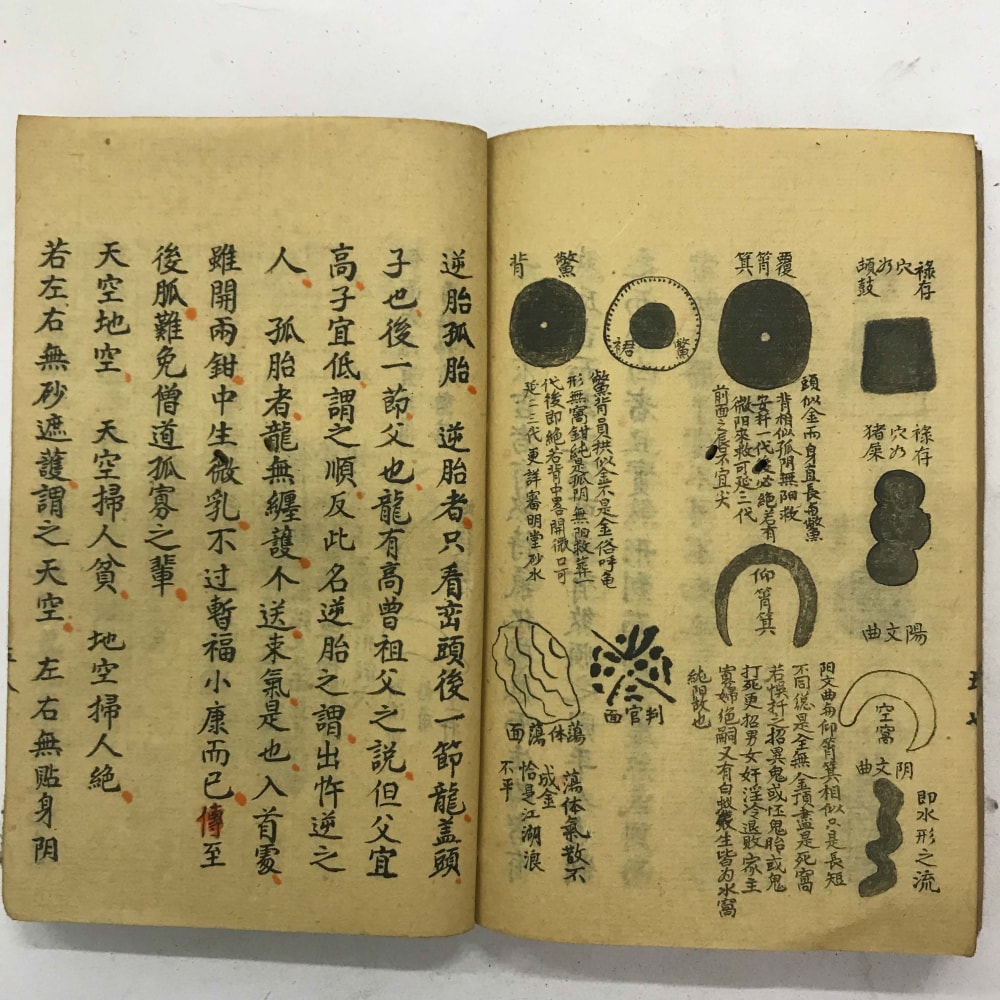 祿存
穴乃
鼓
祿存
穴乃
猪屎
陽文曲
空窩
阴文曲
即水形之流
覆筲箕
頭似金而身直長與鱉
背相似孤阴無阳救
安扦一代必絕若有
微阳來救可延三代
前面之唇不宜尖
仰筲箕
阳文曲與仰筲箕相似只是長短
不同縂是全無金頂盡是死窩
若悞扦之招異鬼或怪鬼胎或鬼
打死更招男女奸淫冷退敗家主
寡婦絕嗣又有白蟻叢生皆为水窩
純阴故也
鱉裙
鱉背
鱉背員拱似金不是金俗呼龟
形無窩鉗純是孤阴無阳救葬一
代後即絕若背中畧開微口可
延二三代更詳審明堂砂水
判官面
蕩体蕩面
蕩体氣散不
成金
恰是江湖浪
不平
逆胎孤胎 逆胎者只看峦頭後一節龍盖頭
子也後一節父也龍有高曾祖父之說但父宜
高子宜低謂之順反此名逆胎之謂出忤逆之
人 孤胎者龍無纏護不送束氣是也入首處
雖開兩鉗中生微乳不过暫福小康而已傳至
後胍難免僧道孤寡之輩
天空地空 天空掃人貧 地空掃人絕
若左右無砂遮護謂之天空 左右無貼身阴